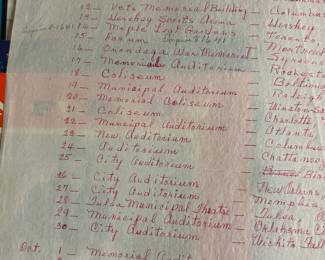 12 – Vet's Memorial Building – Columbus
13 – Hershey Sports Arena – Hershey
14 – Maple Leaf Gardens – Toronto
15 – Forum – Montreal
16 – Onondaga War Memorial – Syracuse
17 – Memorial Auditorium – Rochester
18 – Coliseum – Baltimore
19 – Municipal Auditorium – Raleigh
20 – Memorial Coliseum – Winston-S
21 – Coliseum – Charlotte
22 – Municipal Auditorium – Atlanta
23 – New Auditorium – Columbus
24 – Auditorium – Chattanoo
25 – City Auditorium – Bir
26 – City Auditorium – New Orleans
27 – City Auditorium – Memphis
28 – Tulsa Municipal Theatre – Tulsa,
29 – Municipal Auditorium – Oklahoma Ci
30 – City Auditorium – Wichita Fal
Oct. 1 – Memorial Audit